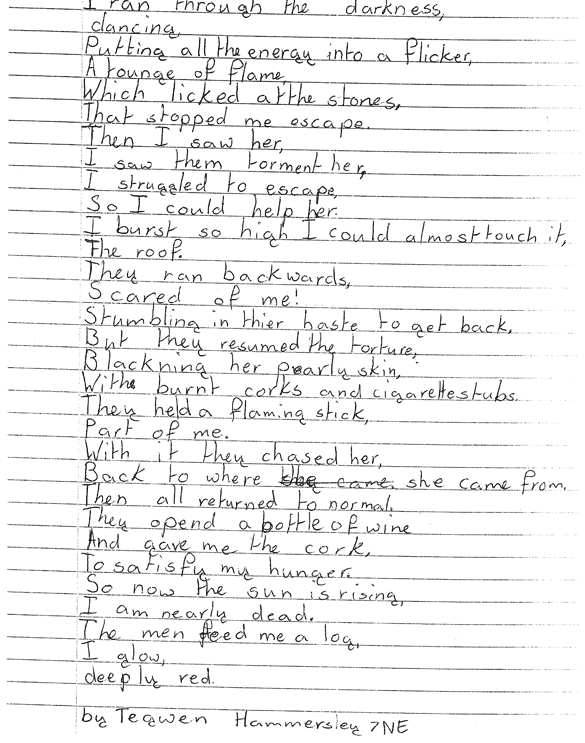 I ran through the darkness,
dancing,
Putting all the energy into a flicker,
A tounge of flame,
Which licked at the stones,
That stopped me escape.
Then I saw her,
I saw them torment her,
I struggled to escape,
So I could help her.
I burst so high I could almost touch it,
The roof.
They ran backwards,
Scared of me!
Stumbling in thier haste to get back,
But they resumed the torture,
Blackning her pearly skin,
Withe burnt corks and cigarette stubs.
They held a flaming stick,
Part of me.
With it they chased her,
Back to where she came. she came from.
Then all returned to normal.
They opend a bottle of wine
And gave me the cork,
To satisfy my hunger.
So now the sun is rising,
I am nearly dead.
The men feed me a log,
I glow,
deeply red.
by Tegwen Hammersley 7NE